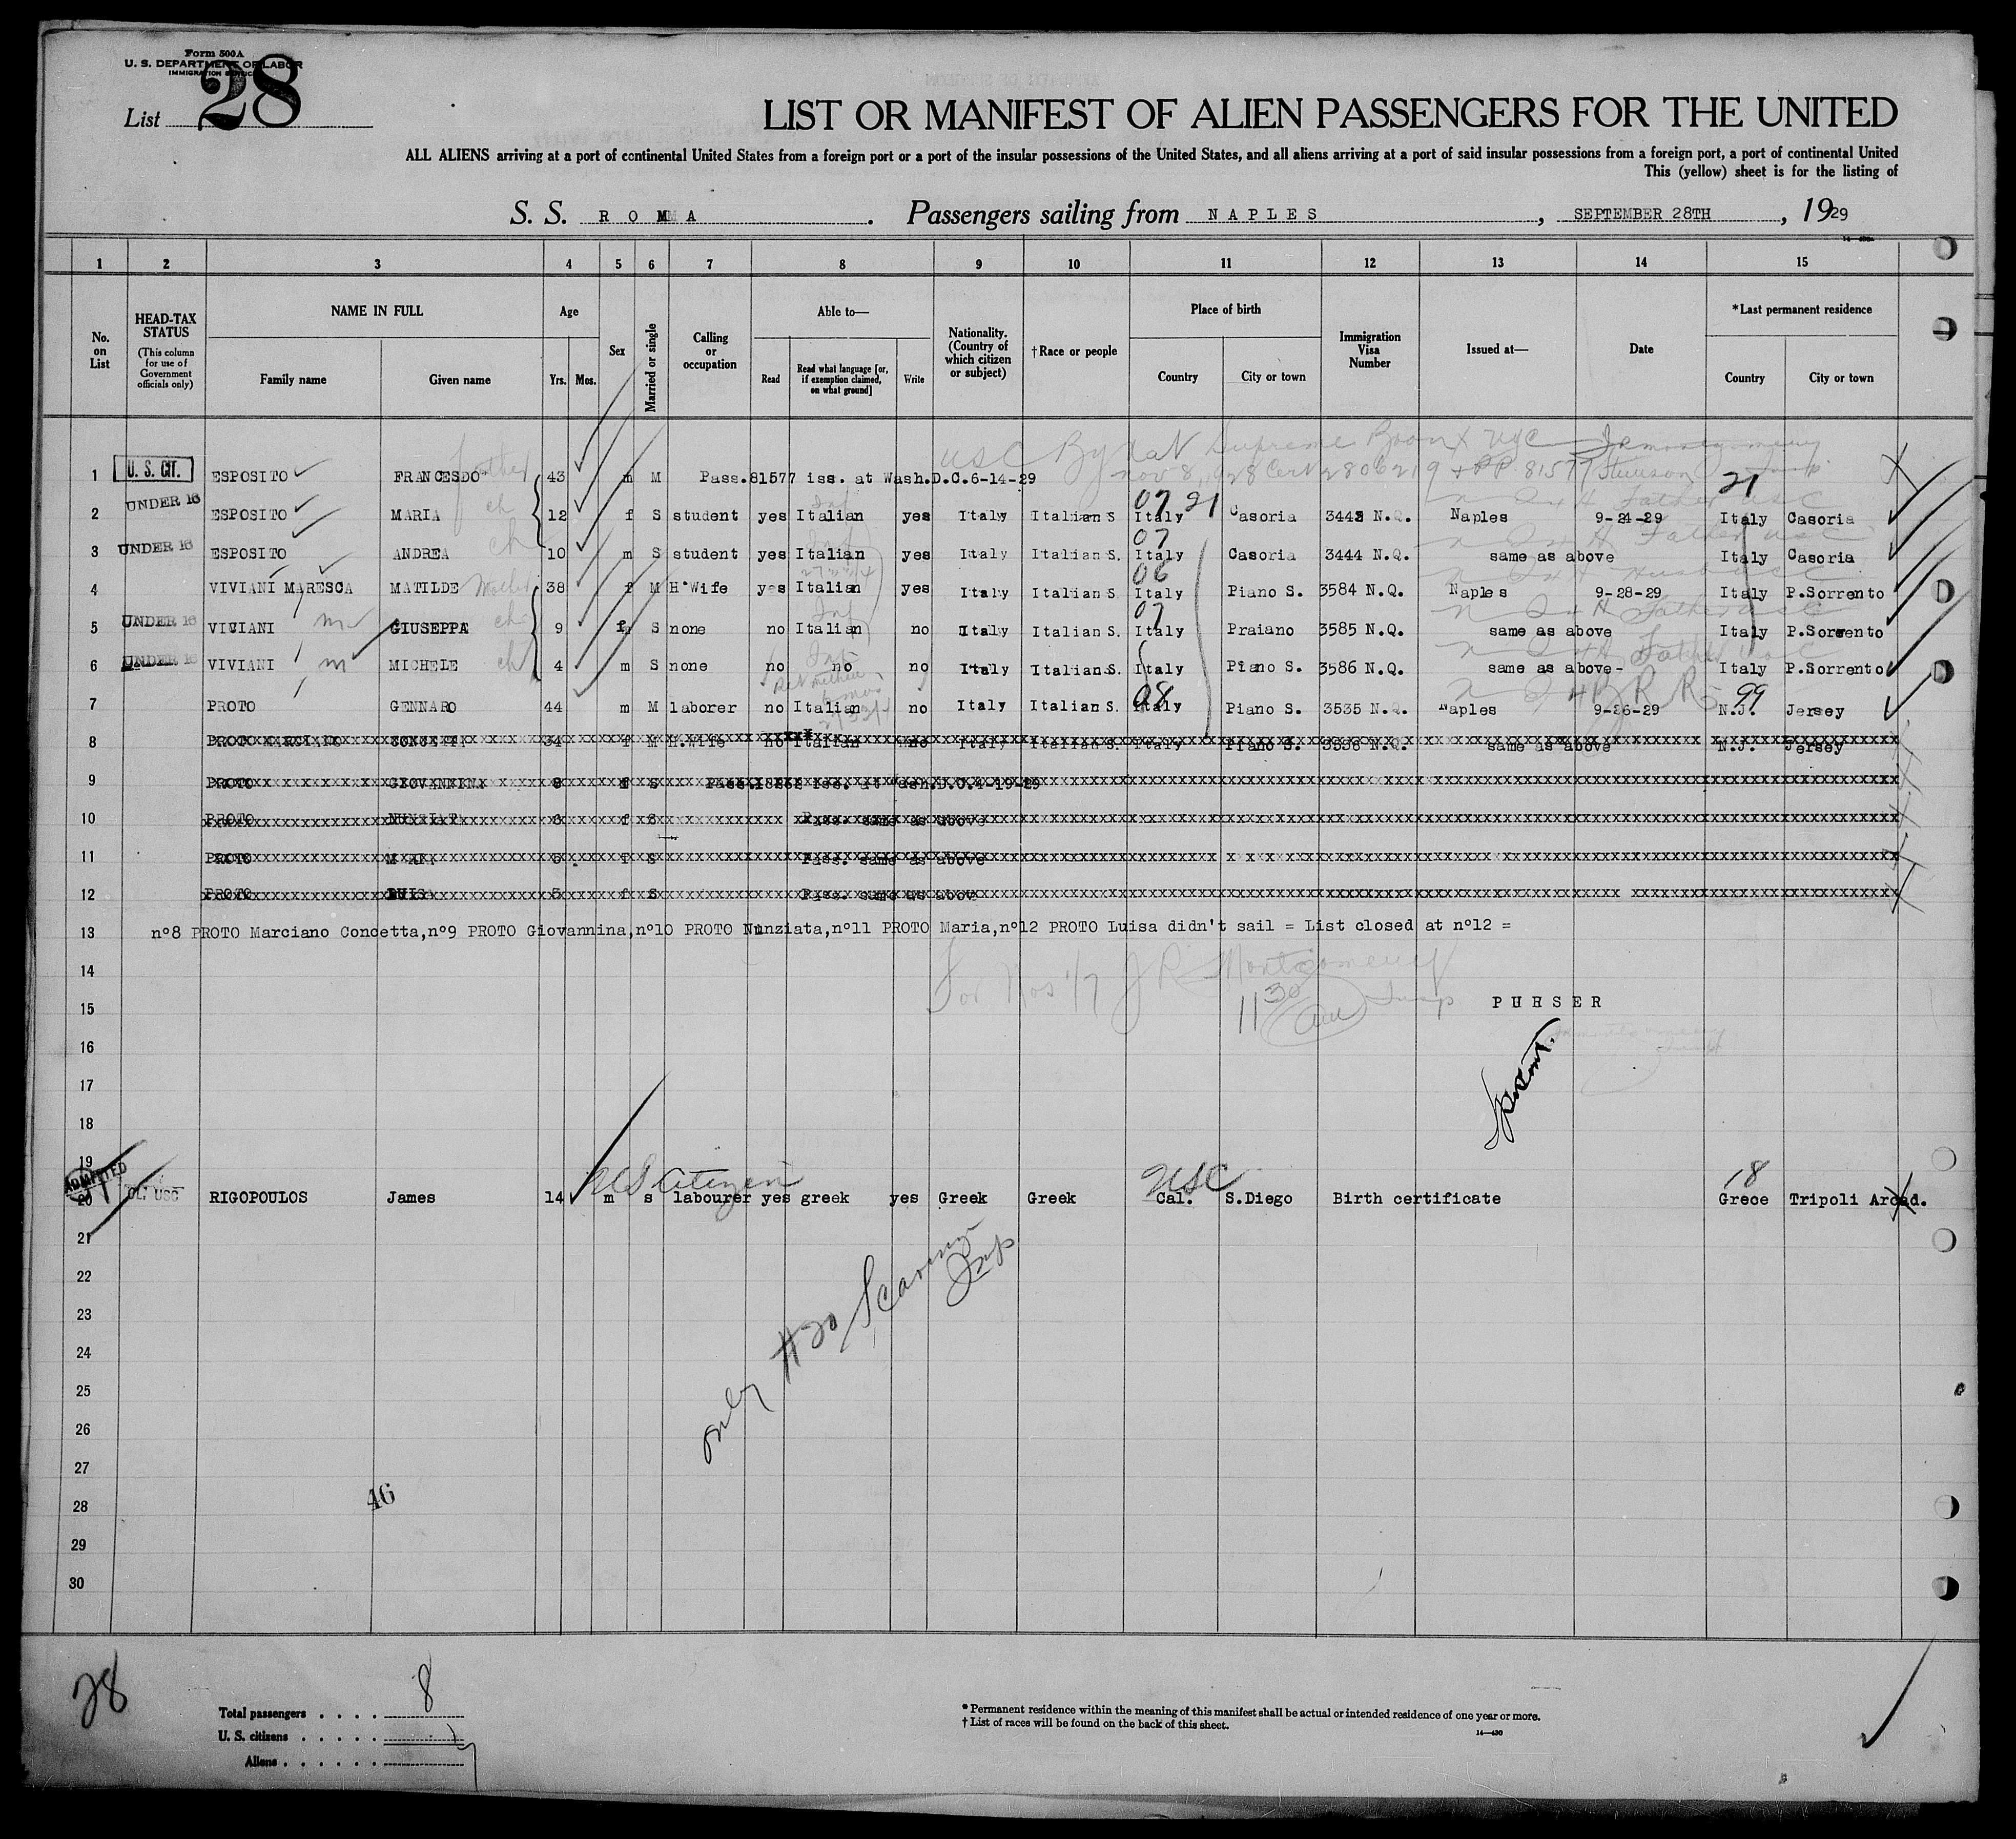 Form 500A
U. S. DEPARTMENT OF LABOR
IMMIGRATION SERVICE
List 28
LIST OR MANIFEST OF ALIEN PASSENGERS FOR THE UNITED
ALL ALIENS arriving at a port of continental United States from a foreign port or a port of the insular possessions of the United States, and all aliens arriving at a port of said insular possessions from a foreign port, a port of continental United
This (yellow) sheet is for the listing of
S. S. ROMA. Passengers sailing from NAPLES, SEPTEMBER 28TH, 1929
1 2 3 4 5 6 7 8 9 10 11 12 13 14 15
No. on List
HEAD-TAX STATUS (This column for use of Government officials only)
NAME IN FULL Family name Given name
Age Yrs. Mos.
Sex
Married or single
Calling or occupation
Able to— Read Read what language [or, if exemption claimed, on what ground] Write
Nationality. (Country of which citizen or subject)
†Race or people
Place of birth Country City or town
Immigration Visa Number
Issued at—
Date
*Last permanent residence Country City or town
USC By Nat Supreme Bronx NYC
Nov 8, 1928 Cert 2806219 + PP. 81577
1 U. S. CIT. ESPOSITO FRANCESDO father 43 m M Pass.81577 iss. at Wash.D.C.6-14-29 21
2 UNDER 16 ESPOSITO MARIA ch 12 f S student yes Italian yes Italy Italian S 07 21 Italy Casoria 3443 N.Q. Naples 9-24-29 Italy Casoria
3 UNDER 16 ESPOSITO ANDREA ch 10 m S student yes Italian yes Italy Italian S. 07 Italy Casoria 3444 N.Q. same as above Italy Casoria
4 VIVIANI MARESCA MATILDE Mother 38 f M H'Wife yes Italian yes Italy Italian S. 06 Italy Piano S. 3584 N.Q. Naples 9-28-29 Italy P.Sorrento
5 UNDER 16 VIVIANI m GIUSEPPA ch 9 f S none no Italian no Italy Italian S. 07 Italy Praiano 3585 N.Q. same as above Italy P.Sorrento
6 UNDER 16 VIVIANI m MICHELE ch 4 m S none no no no Italy Italian S. Italy Piano S. 3586 N.Q. same as above- Italy P.Sorrento
7 PROTO GENNARO 44 m M laborer no Italian no Italy Italian S. 08 Italy Piano S. 3535 N.Q. Naples 9-26-29 99 N.J. Jersey
8 PROTO MARCIANO CONCETTA 34 f M H.Wife no Italian no Italy Italian S. Italy Piano S. 3536 N.Q. same as above N.J. Jersey
9 PROTO GIOVANNINA f S iss. at Wash.D.C.4-19-29
10 PROTO 6 f S Pass. same as above
11 PROTO f S Pass. same as above
12 PROTO LUISA f S Pass. same as above
13 nº8 PROTO Marciano Concetta,nº9 PROTO Giovannina,nº10 PROTO Nunziata,nº11 PROTO Maria,nº12 PROTO Luisa didn't sail = List closed at nº12 =
14 For Nos 1/7 J R Montgomery
15 11 30 am Insp PURSER
16
17
18
19 ADMITTED
US Citizen USC 18
20 USC RIGOPOULOS James 14 m s labourer yes greek yes Greek Greek Cal. S.Diego Birth certificate Grece Tripoli Arcad.
21
22
23
24
25
26
27
28
29
30
only #20 Insp
46
28
Total passengers . . . . 8
U. S. citizens . . . . .
Aliens . . . . . .
* Permanent residence within the meaning of this manifest shall be actual or intended residence of one year or more.
† List of races will be found on the back of this sheet.
14—430